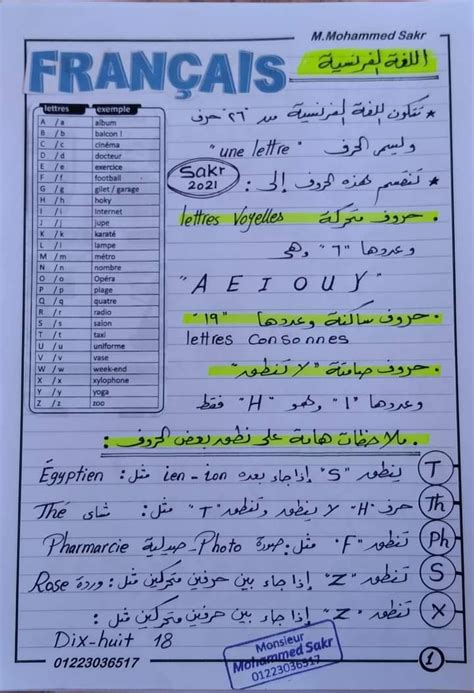 M.Mohammed Sakr
FRANÇAIS
اللغة الفرنسية
lettres exemple
A / a album
B / b balcon !
C / c cinéma
D / d docteur
E / e exercice
F / f football
G / g gilet / garage
H / h hoky
I / i Internet
J / j jupe
K / k karaté
L / l lampe
M / m métro
N / n nombre
O / o Opéra
P / p plage
Q / q quatre
R / r radio
S / s salon
T / t taxi
U / u uniforme
V / v vase
W / w week-end
X / x xylophone
Y / y
Z / z zoo
★ تتكون اللغة الفرنسية من "٢٦" حرف
ويسمى الحرف "une lettre"
Sakr 2021
★ تنقسم هذه الحروف إلى :
• حروف متحركة lettres Voyelles
وعددها "٦" وهى
"A E I O U Y"
• حروف ساكنة وعددها "١٩"
lettres Consonnes
• حروف صامتة "لا تنطق"
وعددها "١" وهو "H" فقط
• ملاحظات هامة على نطق بعض الحروف :
T ينطق "S" إذا جاء بعده ien - ion مثل : Égyptien
Th حرف "H" لا ينطق وتنطق "T" مثل : شاى Thé
Ph تنطق "F" مثل : صورة Photo - صيدلية Pharmarcie
S تنطق "Z" إذا جاء بين حرفين متحركين مثل : وردة Rose
X تنطق "Z" إذا جاء بين حرفين متحركين مثل :
Dix-huit 18
Monsieur
Mohammed Sakr
01223036517
01223036517
1